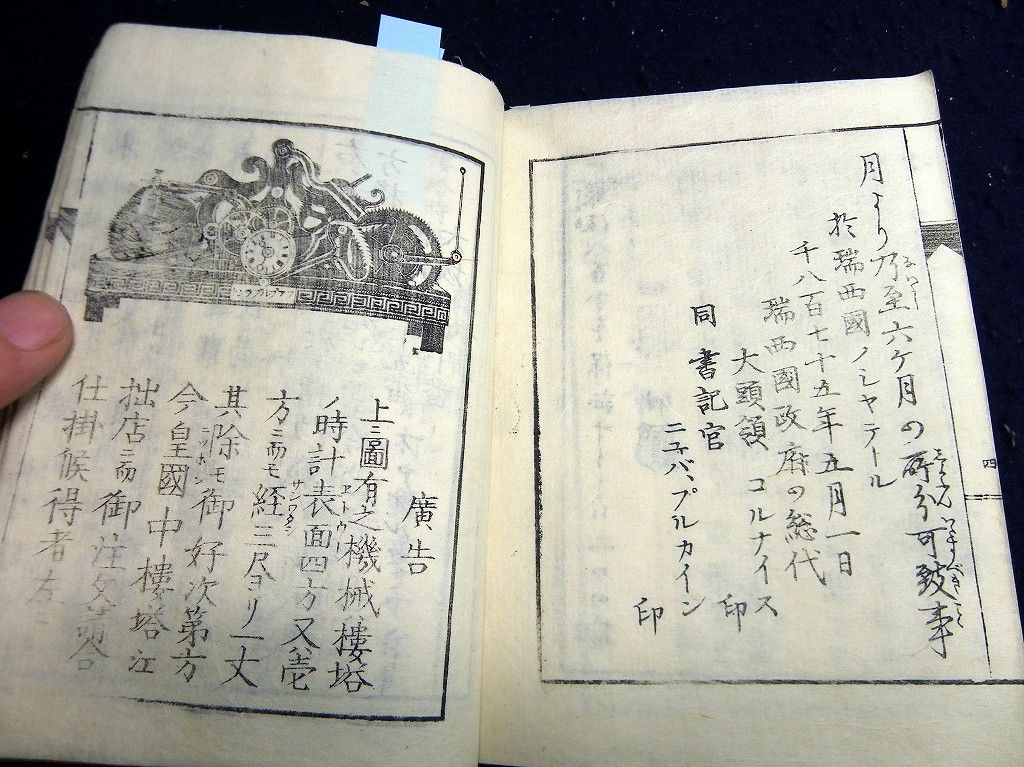 月より乃至六ケ月の所分可致事
於瑞西國ノシヤテール
千八百七十五年五月一日
瑞西國政府の総代
大頭領 コルナイス 印
同書記官 ニユバプルカイン 印
四
廣告
上ニ圖有之機械樓塔
ノ時計表面四方又壱
方ニ而モ経三尺ヨリ一丈
其除モ御好次第方
今皇國中樓塔江
拙店ニ而御注文
仕掛候得者左